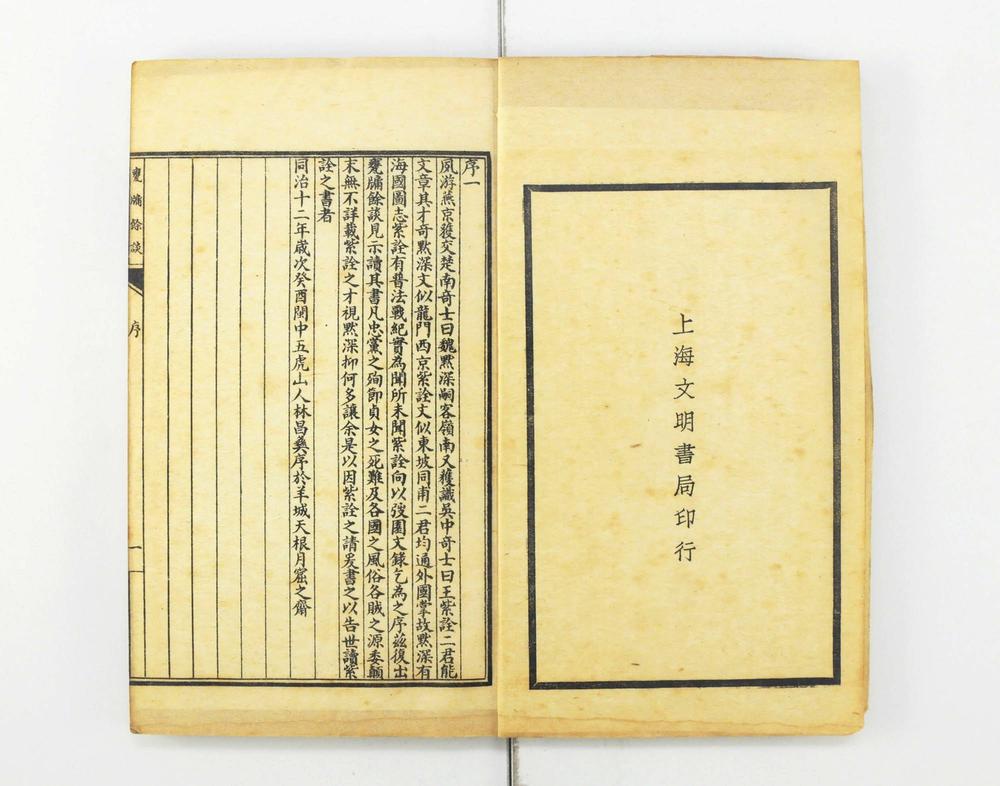 上海文明書局印行
序一
夙游燕京獲交楚南奇士曰魏默深嗣客嶺南又獲識吳中奇士曰王紫詮二君能
文章具才奇默深文似龍門西京紫詮文似東坡同甫二君均通外國掌故默深有
海國圖志紫詮有普法戰紀實為聞所未聞紫詮向以弢園文錄乞為之序茲復出
甕牖餘談見示讀其書凡忠黨之殉節貞女之死難及各國之風俗各賊之源委顛
末無不詳載紫詮之才視默深抑何多讓余是以因紫詮之請爰書之以告世讀紫
詮之書者
同治十二年歲次癸酉閩中五虎山人林昌彝序於羊城天根月窟之齋
甕牖餘談
序
一